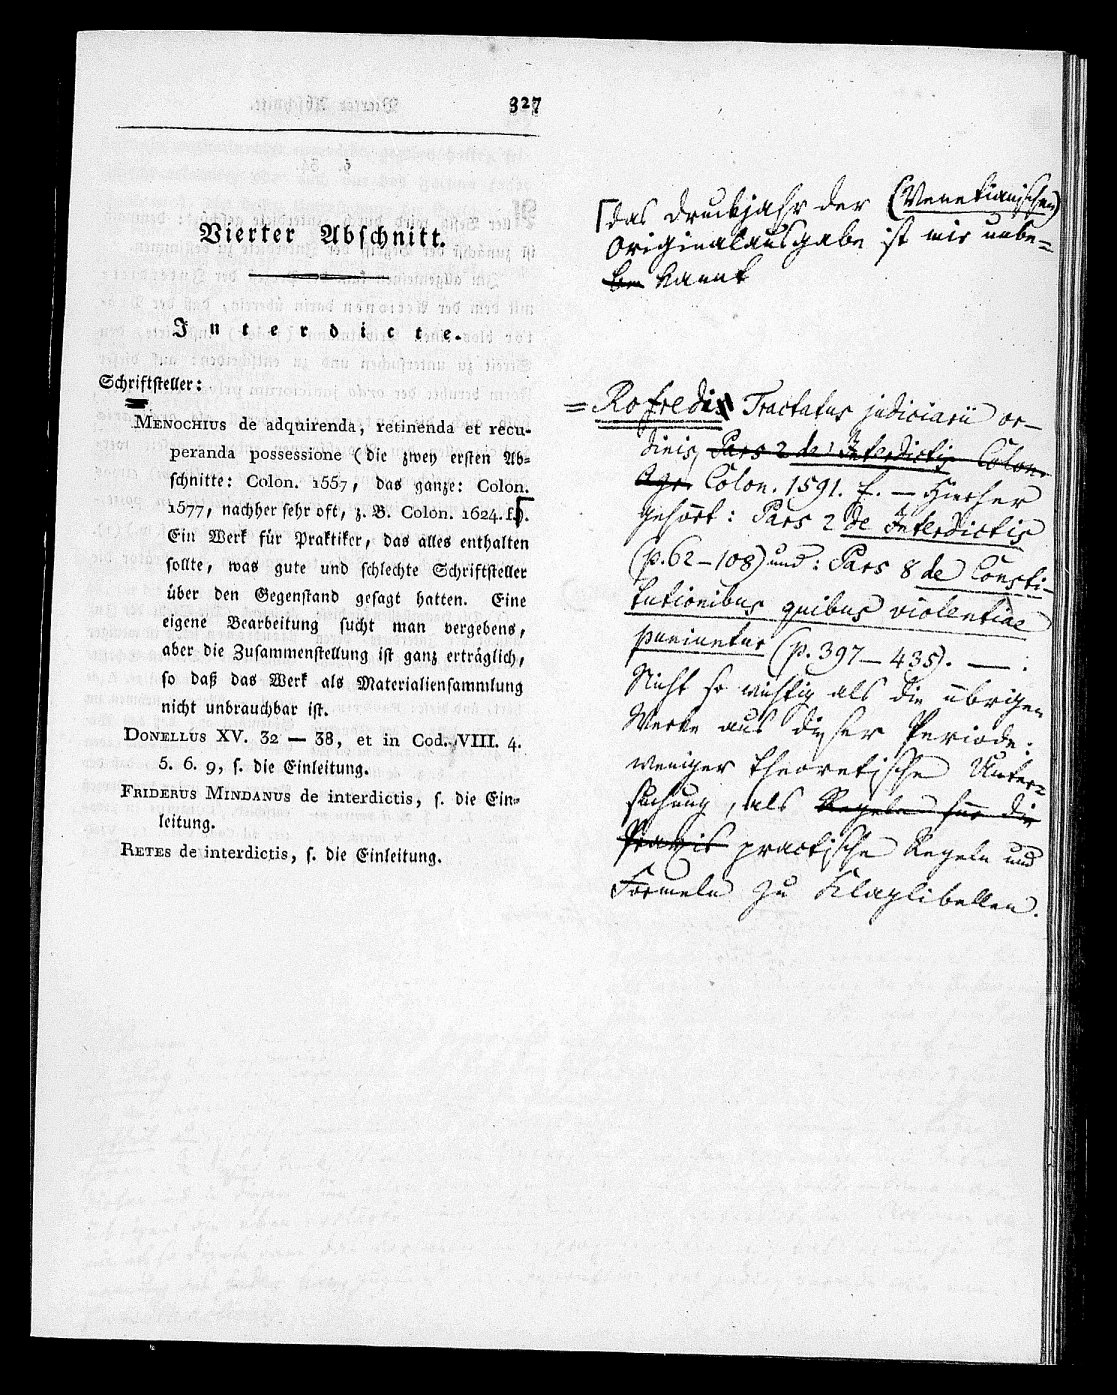 327
Vierter Abschnitt.
Interdicte.
Schriftsteller:
MENOCHIUS de adquirenda, retinenda et recu-
peranda possessione (die zwey ersten Ab-
schnitte: Colon. 1557, das ganze: Colon.
1577, nachher sehr oft, z. B. Colon. 1624. f.).
Ein Werk für Praktiker, das alles enthalten
sollte, was gute und schlechte Schriftsteller
über den Gegenstand gesagt hatten. Eine
eigene Bearbeitung sucht man vergebens,
aber die Zusammenstellung ist ganz erträglich,
so daß das Werk als Materialiensammlung
nicht unbrauchbar ist.
DONELLUS XV. 32 — 38, et in Cod. VIII. 4.
5. 6. 9, s. die Einleitung.
FRIDERUS MINDANUS de interdictis, s. die Ein-
leitung.
RETES de interdictis, s. die Einleitung.
das Druckjahr der (Venetianischen)
Originalausgabe ist mir unbe-
kannt
= Rofredi Tractatus judiciarii or-
dinis, Pars 2 de Interdictis Colon.
Agr. Colon. 1591. f. — Hierher
gehört: Pars 2 de Interdictis
(p. 62 — 108) und: Pars 8 de Consti-
tutionibus quibus violentiae
puniuntur (p. 397 — 435). — :
Nicht so wichtig als die übrigen
Werke aus dieser Periode:
weniger theoretische Unter-
suchung, als Regeln für die
Praxis practische Regeln und
Formeln zu Klaglibellen.